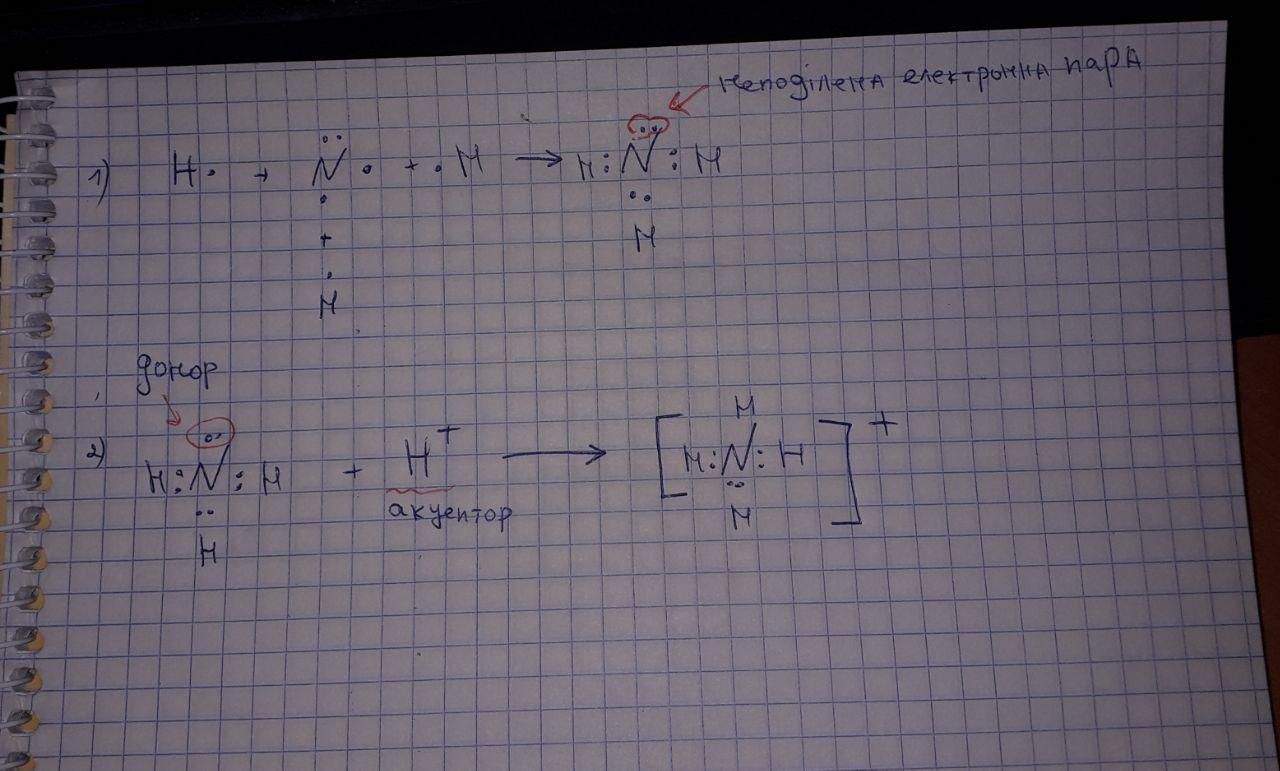 неподілена електронна пара
1) H· + ·N̈· + ·H → H:N̈:H
+
·
H
··
H
донор
2) H:N̈:H + H⁺ → [H:N:H]⁺
H
акцептор
··
H
··
H